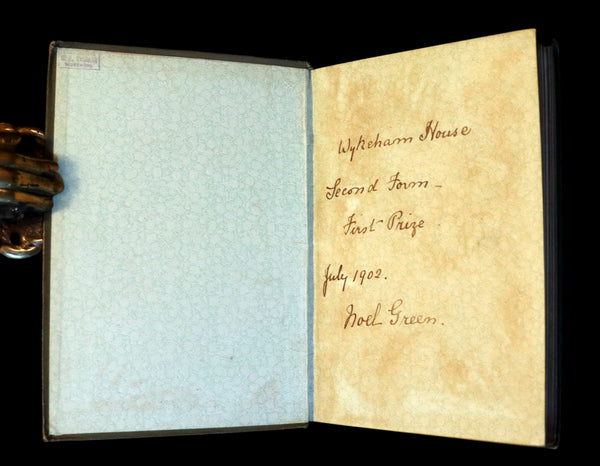 Wykeham House
Second Form -
First Prize
July 1902.
Noel Green.